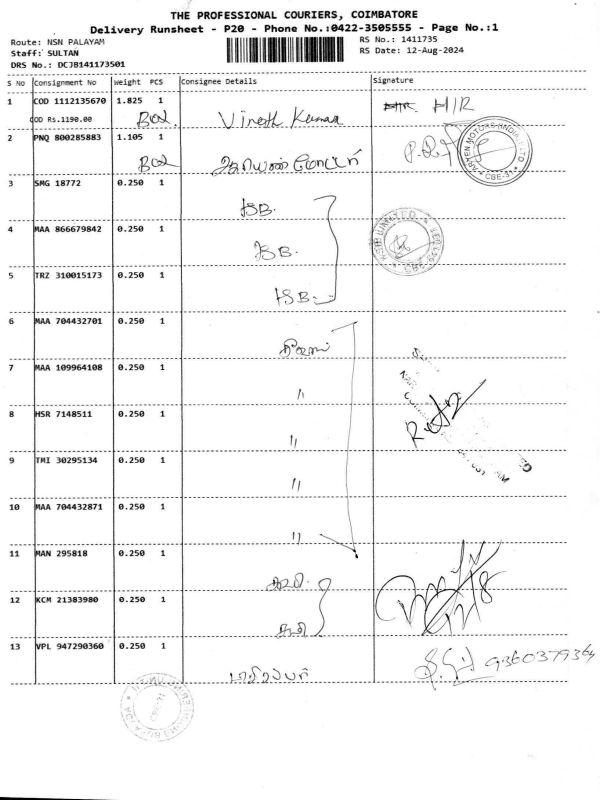 THE PROFESSIONAL COURIERS, COIMBATORE
Delivery Runsheet - P20 - Phone No.:0422-3505555 - Page No.:1
Route: NSN PALAYAM
RS No.: 1411735
Staff: SULTAN
RS Date: 12-Aug-2024
DRS No.: DCJB141173501
S No Consignment No Weight PCS Consignee Details Signature
1 COD 1112135670 1.825 1
COD Rs.1190.00 Box. Vineeth Kumar HIR
2 PNQ 800285883 1.105 1
Box
3 SMG 18772 0.250 1
ISB.
4 MAA 866679842 0.250 1
ISB.
5 TRZ 310015173 0.250 1
ISB.
6 MAA 704432701 0.250 1
7 MAA 109964108 0.250 1
"
8 HSR 7148511 0.250 1
"
9 TMI 30295134 0.250 1
"
10 MAA 704432871 0.250 1
"
11 MAN 295818 0.250 1
12 KCM 21383980 0.250 1
13 VPL 947290360 0.250 1
9360379364